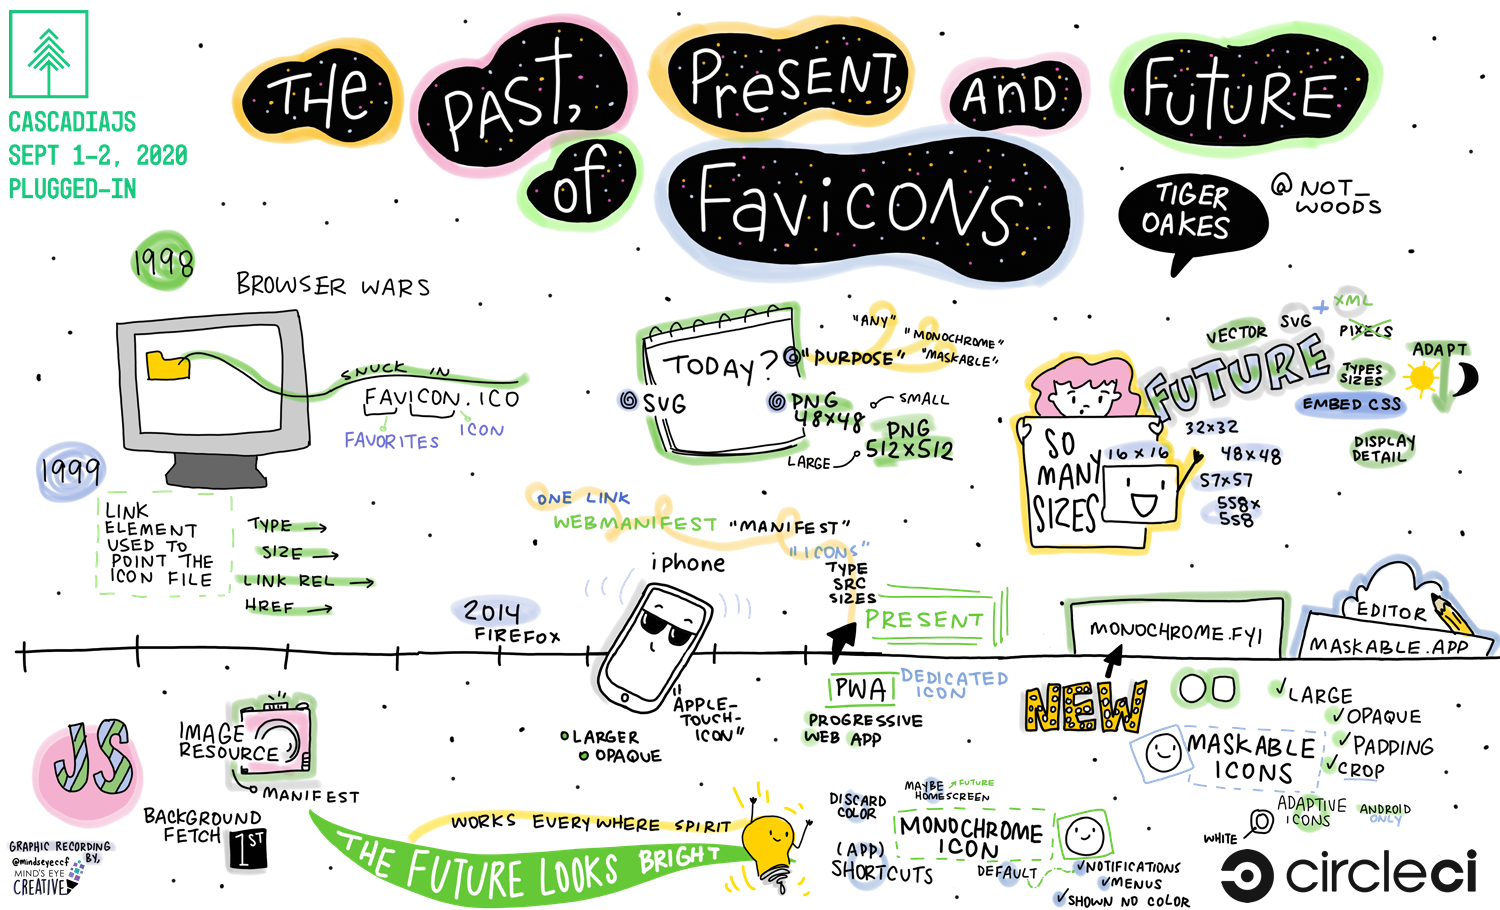 CASCADIAJS
SEPT 1-2, 2020
PLUGGED-IN
THE PAST, PRESENT, AND FUTURE
OF FAVICONS
TIGER
OAKES
@NOT_
WOODS
1998
BROWSER WARS
SNUCK IN
FAVICON.ICO
FAVORITES
ICON
1999
LINK
ELEMENT
USED TO
POINT THE
ICON FILE
TYPE →
SIZE →
LINK REL →
HREF →
TODAY?
SVG
"PURPOSE"
"ANY"
"MONOCHROME"
"MASKABLE"
PNG
48X48
SMALL
PNG
512X512
LARGE
ONE LINK
WEBMANIFEST "MANIFEST"
"ICONS"
TYPE
SRC
SIZES
FUTURE
VECTOR
SVG
+
XML
PIXELS
TYPES
SIZES
EMBED CSS
ADAPT
DISPLAY
DETAIL
SO
MANY
SIZES
16X16
32X32
48X48
57X57
558X
558
2014
FIREFOX
iphone
"APPLE-
TOUCH-
ICON"
LARGER
OPAQUE
PRESENT
PWA
DEDICATED
ICON
PROGRESSIVE
WEB APP
MONOCHROME.FYI
EDITOR
MASKABLE.APP
NEW
LARGE
OPAQUE
PADDING
CROP
MASKABLE
ICONS
ADAPTIVE
ICONS
ANDROID
ONLY
WHITE
JS
IMAGE
RESOURCE
MANIFEST
BACKGROUND
FETCH
1ST
WORKS EVERYWHERE SPIRIT
THE FUTURE LOOKS BRIGHT
DISCARD
COLOR
MAYBE → FUTURE
HOMESCREEN
MONOCHROME
ICON
(APP)
SHORTCUTS
DEFAULT
NOTIFICATIONS
MENUS
SHOWN NO COLOR
GRAPHIC RECORDING
BY,
@mindseyeccf
MIND'S EYE
CREATIVE
circleci